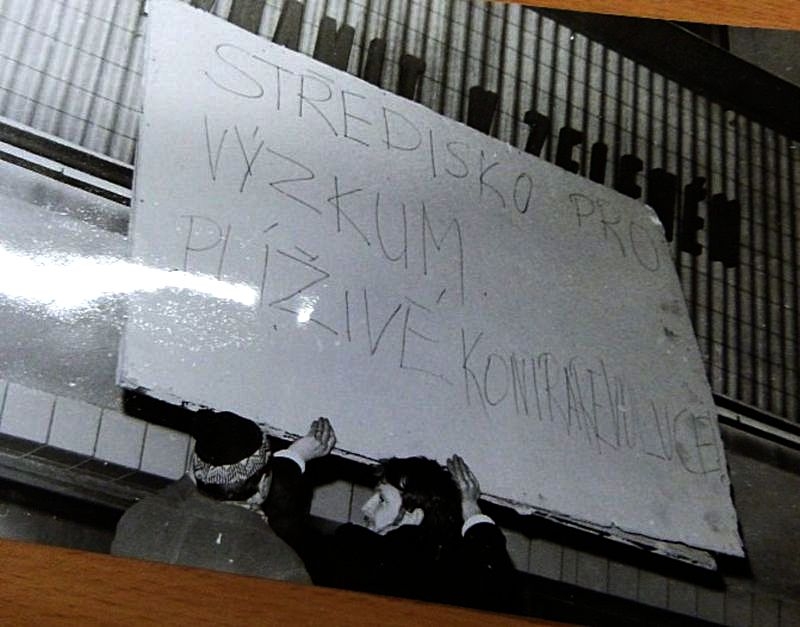 STŘEDISKO PRO
VÝZKUM
PLÍŽIVÉ KONTRAREVOLUCE